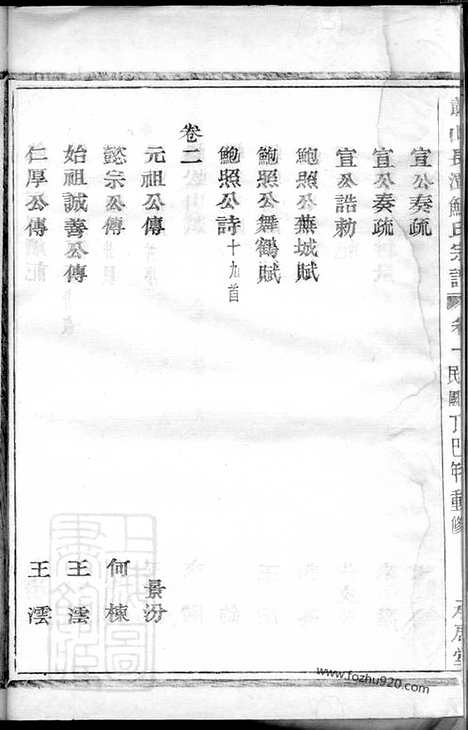 宣公奏疏
宣公奏疏
宣公誥勅
鮑照公蕪城賦
鮑照公舞鶴賦
鮑照公詩十九首
卷二
元祖公傳 景汾
懿宗公傳 何棟
始祖誠善公傳 王澐
仁厚公傳 王澐
鮑氏宗譜 卷一 民國丁巳年重修
www.fozhu920.com